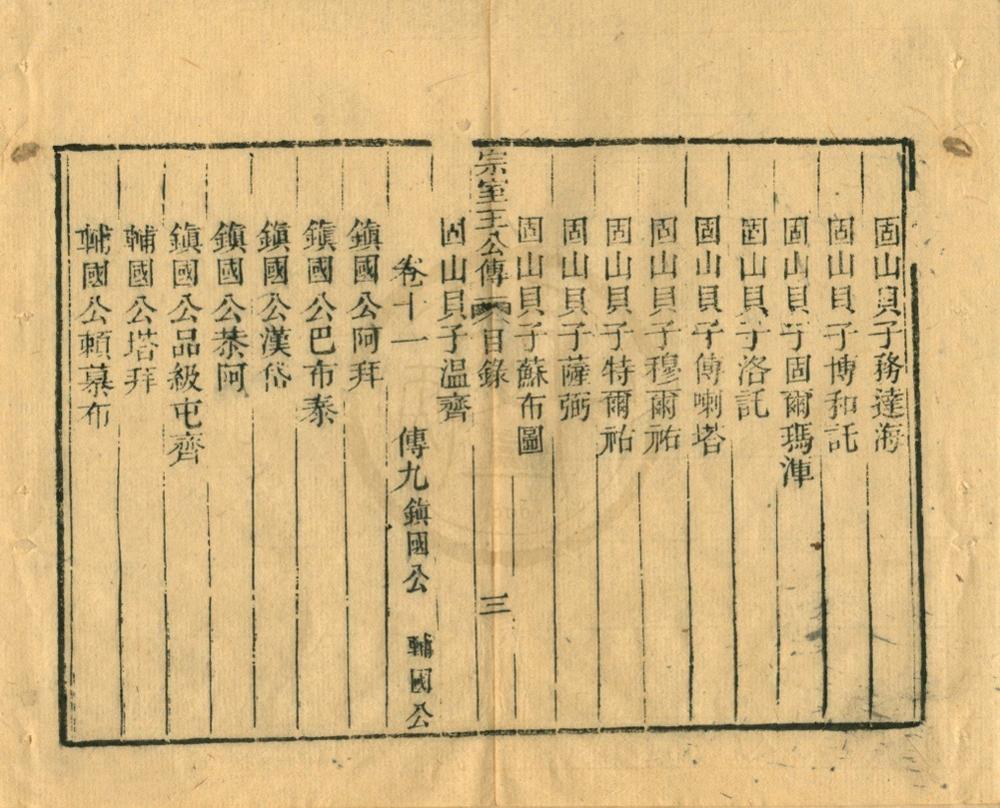 固山貝子務達海
固山貝子博和託
固山貝子固爾瑪渾
固山貝子洛託
固山貝子傅喇塔
固山貝子穆爾祐
固山貝子特爾祐
固山貝子薩弼
固山貝子蘇布圖
宗室王公傳 目錄 三
固山貝子温齊
卷十一 傳九鎮國公 輔國公
鎮國公阿拜
鎮國公巴布泰
鎮國公漢岱
鎮國公恭阿
鎮國公品級屯齊
輔國公塔拜
輔國公賴慕布